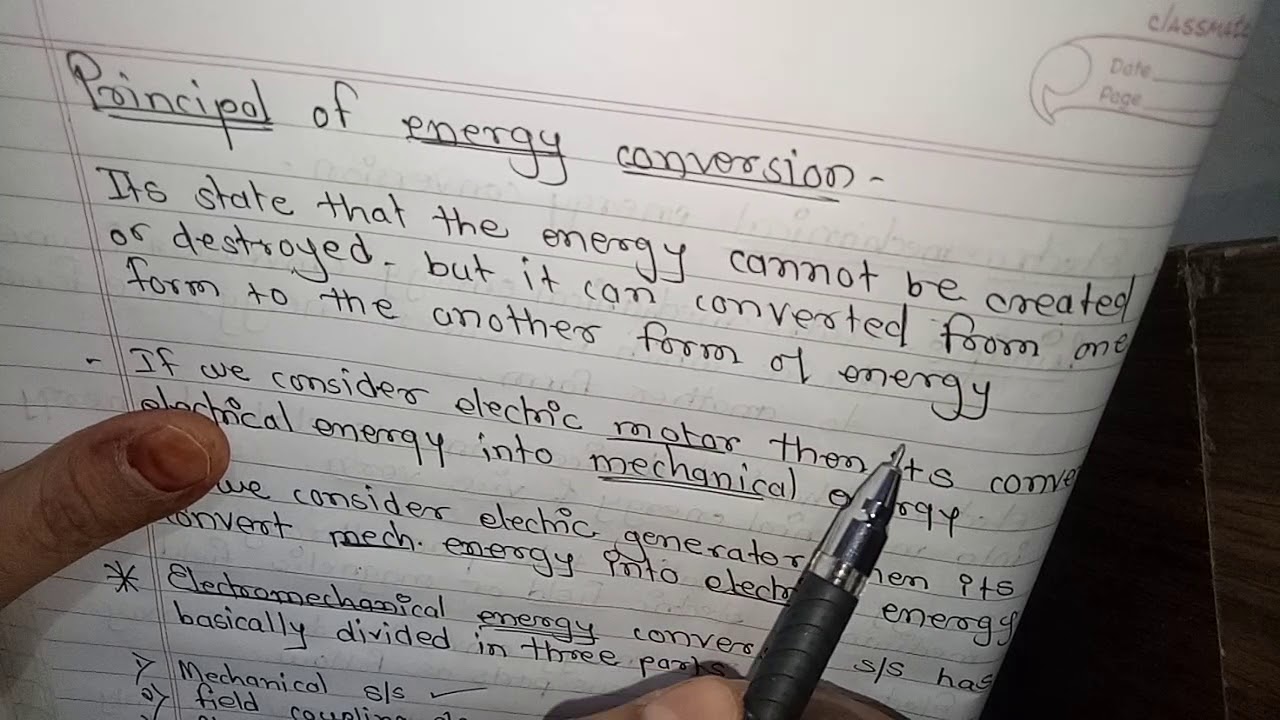 classmate
Date
Page
Principal of energy conversion -
Its state that the energy cannot be created
or destroyed. but it can converted from one
form to the another form of energy
- If we consider electric motor then its conve
electrical energy into mechanical energy.
we consider electric generator then its
convert mech. energy into electr energy
* Electromechanical energy conver s/s has
basically divided in three parts
1) Mechanical s/s ✓
2) field coupling